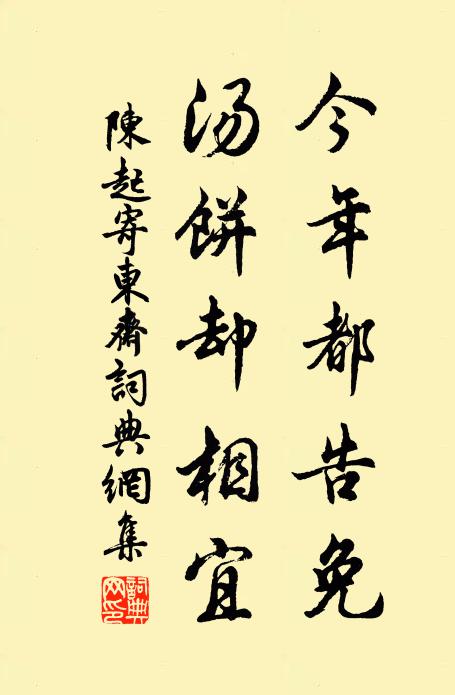 今年都告免
汤餅却相宜
陳起寄東齋詞典網集
詞典网印